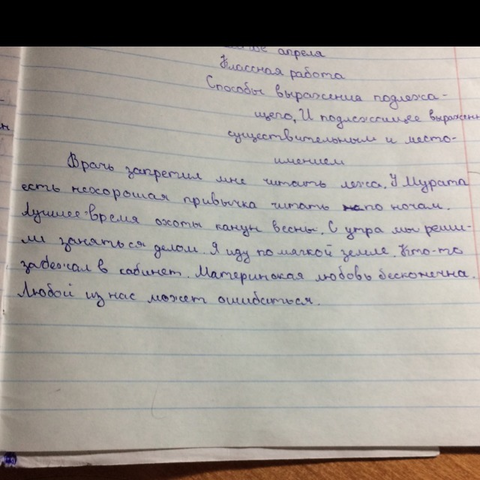 апреля
Классная работа
Способы выражения подлежа-
щего, И подлежащее выражен
существительным и место-
имением
Врачь запретил мне читать лежа. У Мурата
есть нехорошая привычка читать по ночам.
Лучшее время охоты канун весны. С утра мы реши-
ли заняться делом. Я иду по мягкой земле. Кто-то
забежал в кабинет. Материнская любовь бесконечна.
Любой из нас может ошибиться.